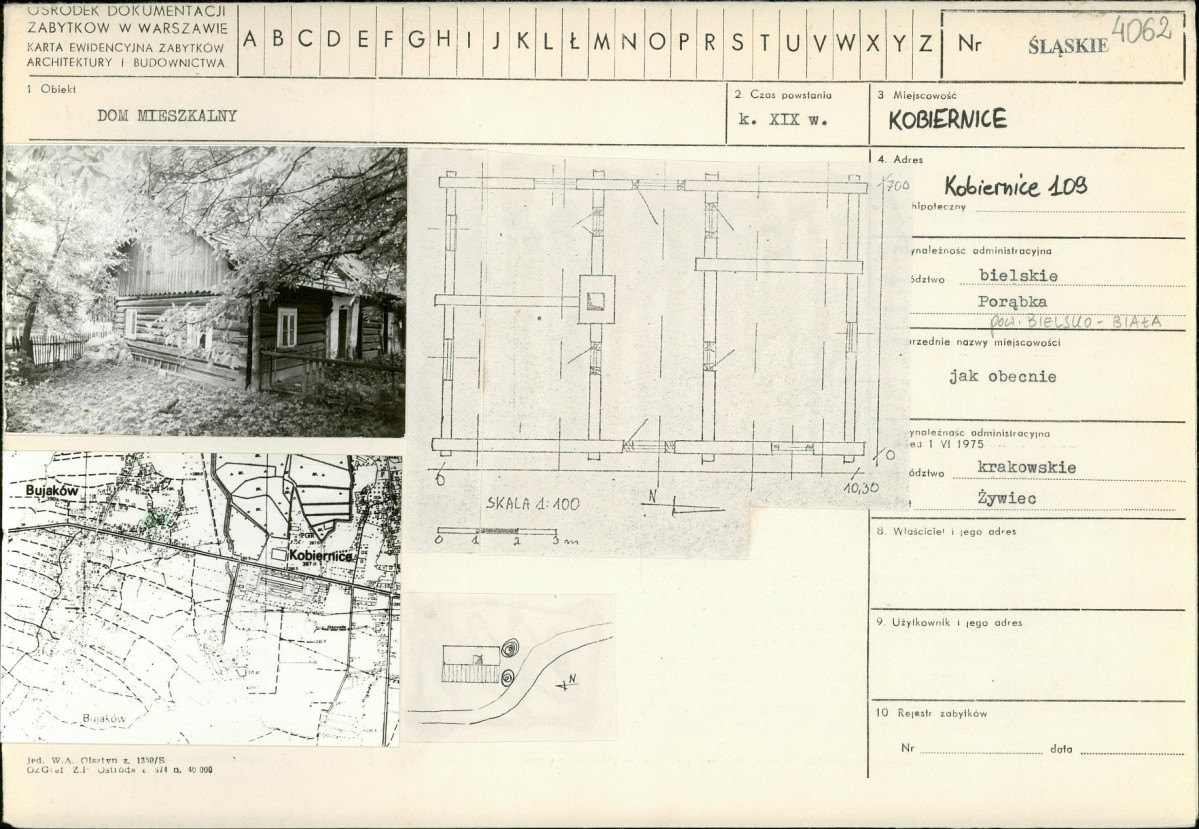 OŚRODEK DOKUMENTACJI
ZABYTKÓW W WARSZAWIE
KARTA EWIDENCYJNA ZABYTKÓW
ARCHITEKTURY I BUDOWNICTWA
A B C D E F G H I J K L Ł M N O P R S T U V W X Y Z
Nr ŚLĄSKIE 4062
1 Obiekt
DOM MIESZKALNY
2 Czas powstania
k. XIX w.
3 Miejscowość
KOBIERNICE
4. Adres
Kobiernice 109
hipoteczny
ynależność administracyjna
ództwo bielskie
Porąbka
pow. BIELSKO-BIAŁA
rzednie nazwy miejscowości
jak obecnie
ynależność administracyjna
ed 1 VI 1975
ództwo krakowskie
t Żywiec
8. Właściciel i jego adres
9. Użytkownik i jego adres
10 Rejestr zabytków
Nr data
700
0
0
10,30
SKALA 1:100
N
0 1 2 3 m
Bujaków
PGR
Kobiernice
Bujaków
N
jed. W.A. Olsztyn z. 1350/S